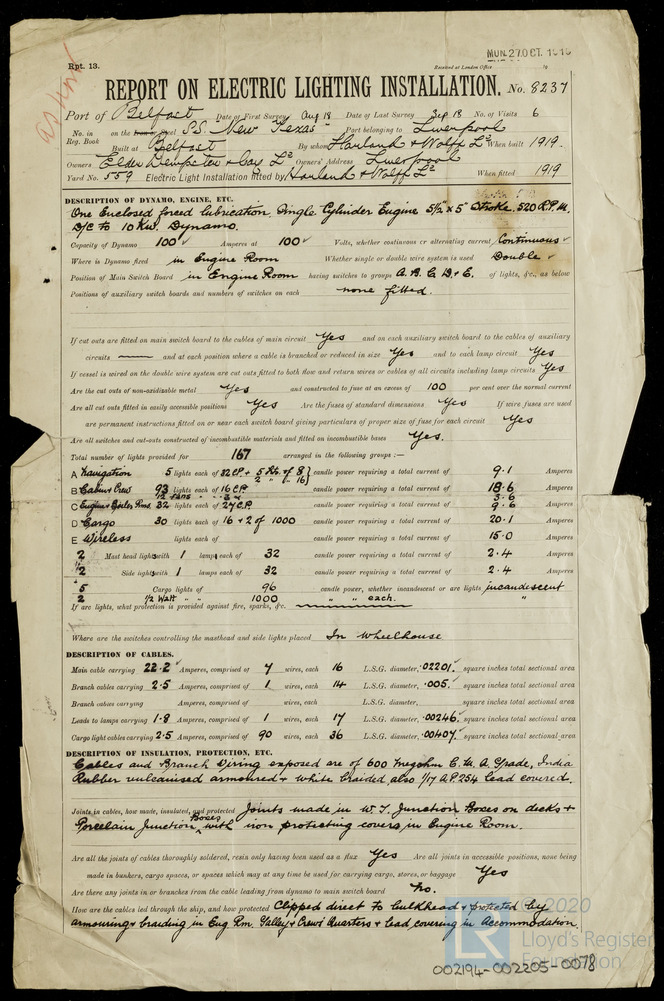 MON. 27 OCT. 1919
Rpt. 13.
Received at London Office
REPORT ON ELECTRIC LIGHTING INSTALLATION. No. 8237
Port of Belfast Date of First Survey Aug 18 Date of Last Survey Sep 18 No. of Visits 6
No. in Reg. Book on the Iron or Steel S.S. "New Texas" Port belonging to Liverpool
Built at Belfast By whom Harland & Wolff Ld When built 1919.
Owners Elder Dempster & Coy Ld Owners' Address Liverpool
Yard No. 559 Electric Light Installation fitted by Harland & Wolff Ld When fitted 1919
DESCRIPTION OF DYNAMO, ENGINE, ETC.
One Enclosed forced lubrication. Single Cylinder Engine 5½" x 5" Stroke. 520 R.P.M.
D/C to 10 Kw. Dynamo.
Capacity of Dynamo 100 Amperes at 100 Volts, whether continuous or alternating current Continuous
Where is Dynamo fixed in Engine Room Whether single or double wire system is used Double
Position of Main Switch Board in Engine Room having switches to groups A. B. C. D. & E. of lights, &c., as below
Positions of auxiliary switch boards and numbers of switches on each none fitted.
If cut outs are fitted on main switch board to the cables of main circuit Yes and on each auxiliary switch board to the cables of auxiliary
circuits — and at each position where a cable is branched or reduced in size Yes and to each lamp circuit Yes
If vessel is wired on the double wire system are cut outs fitted to both flow and return wires or cables of all circuits including lamp circuits Yes
Are the cut outs of non-oxidizable metal Yes and constructed to fuse at an excess of 100 per cent over the normal current
Are all cut outs fitted in easily accessible positions Yes Are the fuses of standard dimensions Yes If wire fuses are used
are permanent instructions fitted on or near each switch board giving particulars of proper size of fuse for each circuit Yes
Are all switches and cut-outs constructed of incombustible materials and fitted on incombustible bases Yes.
Total number of lights provided for 167 arranged in the following groups :—
A Navigation 5 lights each of 32 CP + 5 lts. of 8 candle power requiring a total current of 9.1 Amperes
2 " " 16
B Cabin & Crew 93 lights each of 16 C.P. candle power requiring a total current of 18.6 Amperes
12 Fans 3.6
C Engine & Boiler Rms. 32 lights each of 24 C.P. candle power requiring a total current of 9.6 Amperes
D Cargo 30 lights each of 16 + 2 of 1000 candle power requiring a total current of 20.1 Amperes
E Wireless lights each of candle power requiring a total current of 15.0 Amperes
2 Mast head lights with 1 lamps each of 32 candle power requiring a total current of 2.4 Amperes
2 Side lights with 1 lamps each of 32 candle power requiring a total current of 2.4 Amperes
5 Cargo lights of 96 candle power, whether incandescent or arc lights incandescent
2 ½ Watt " " 1000 " " each. "
If arc lights, what protection is provided against fire, sparks, &c.
Where are the switches controlling the masthead and side lights placed In Wheelhouse
DESCRIPTION OF CABLES.
Main cable carrying 22.2 Amperes, comprised of 7 wires, each 16 L.S.G. diameter, .02201. square inches total sectional area
Branch cables carrying 2.5 Amperes, comprised of 1 wires, each 14 L.S.G. diameter, .005. square inches total sectional area
Branch cables carrying Amperes, comprised of wires, each L.S.G. diameter, square inches total sectional area
Leads to lamps carrying 1.8 Amperes, comprised of 1 wires, each 17 L.S.G. diameter, .00246. square inches total sectional area
Cargo light cables carrying 2.5 Amperes, comprised of 90 wires, each 36 L.S.G. diameter, .00407. square inches total sectional area
DESCRIPTION OF INSULATION, PROTECTION, ETC.
Cables and Branch Wiring exposed are of 600 megohm C.M.A. Grade, India
Rubber vulcanised armoured & white braided, also 1/17 A.P. 254 lead covered.
Joints in cables, how made, insulated, and protected Joints made in W.T. Junction Boxes on decks &
Porcelain Junction Boxes with iron protecting covers in Engine Room.
Are all the joints of cables thoroughly soldered, resin only having been used as a flux Yes Are all joints in accessible positions, none being
made in bunkers, cargo spaces, or spaces which may at any time be used for carrying cargo, stores, or baggage Yes
Are there any joints in or branches from the cable leading from dynamo to main switch board No.
How are the cables led through the ship, and how protected Clipped direct to bulkhead & protected by
armouring & braiding in Eng Rm. Galley & Crew's Quarters & lead covering in Accommodation.
© 2020
LR Lloyd's Register
Foundation
002194-002205-0078